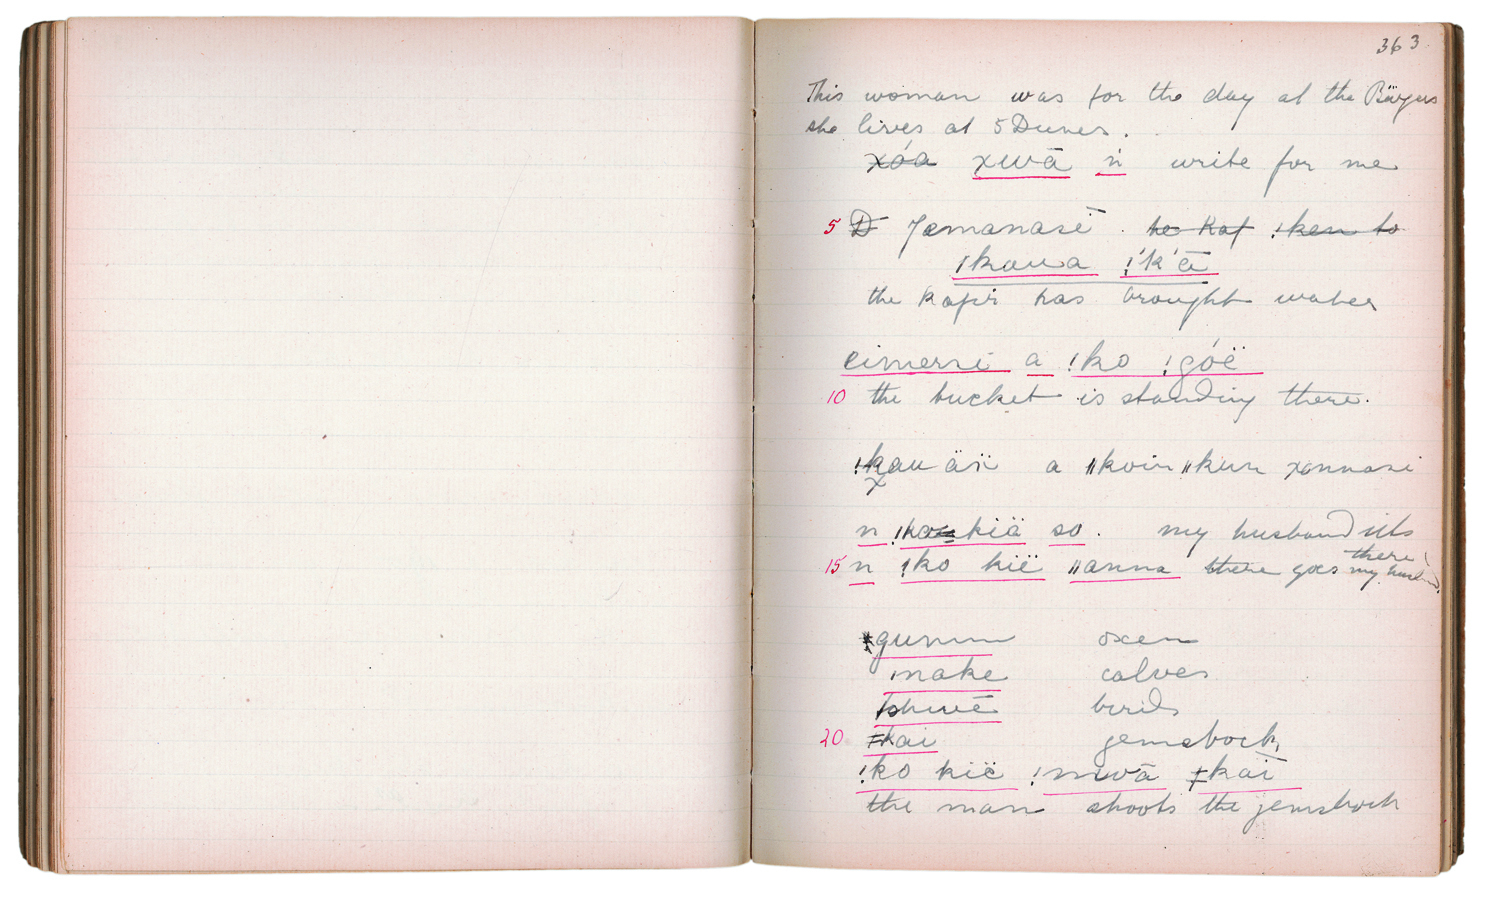 363
This woman was for the day at the Bürgers
she lives at 5 Dunes.
xóa xwā ń write for me
5 D Jemanasē . he Kaf !ken to
ǀkaua !'k'ā
the Kafir has brought water
eimersi a !ko !góë
10 the bucket is standing there.
!kxau äsï a ǁkoin ǁkun xannasi
n !ko kiä so . my husband sits
there
15 n !ko kië ǁanna there goes my husband.
ǂgumm oxen
ǀnake calves
tshwē birds
20 ǂkai gemsbock
!ko kië !nwā ǂkaī
the man shoots the gemsbock